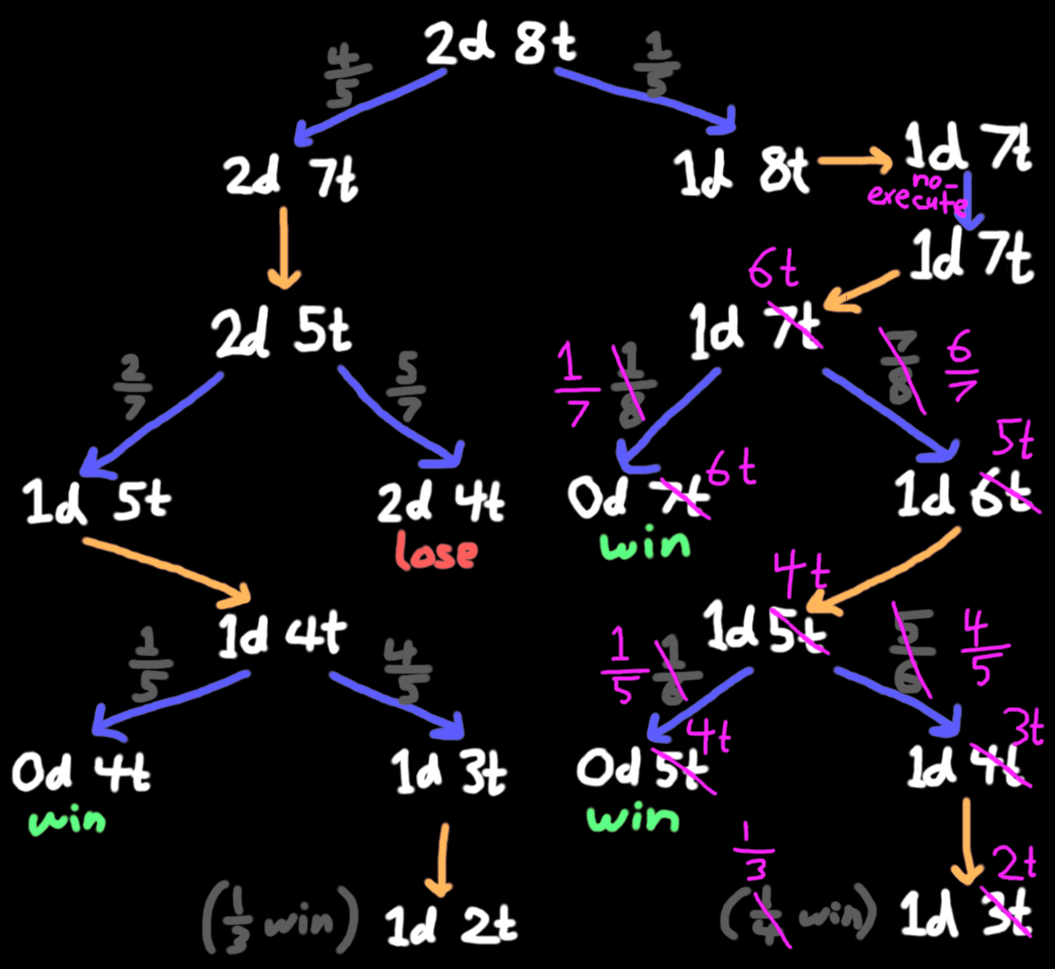 2d 8t
4/5
1/5
2d 7t
1d 8t
1d 7t
no-
execute
1d 7t
2d 5t
6t
1d 7t
2/7
5/7
1/7
1/8
7/8
6/7
1d 5t
2d 4t
lose
0d 7t
6t
win
5t
1d 6t
1d 4t
4t
1d 5t
1/5
4/5
1/5
1/6
5/6
4/5
0d 4t
win
1d 3t
4t
0d 5t
win
3t
1d 4t
(1/3 win) 1d 2t
1/3
(1/4 win)
2t
1d 3t